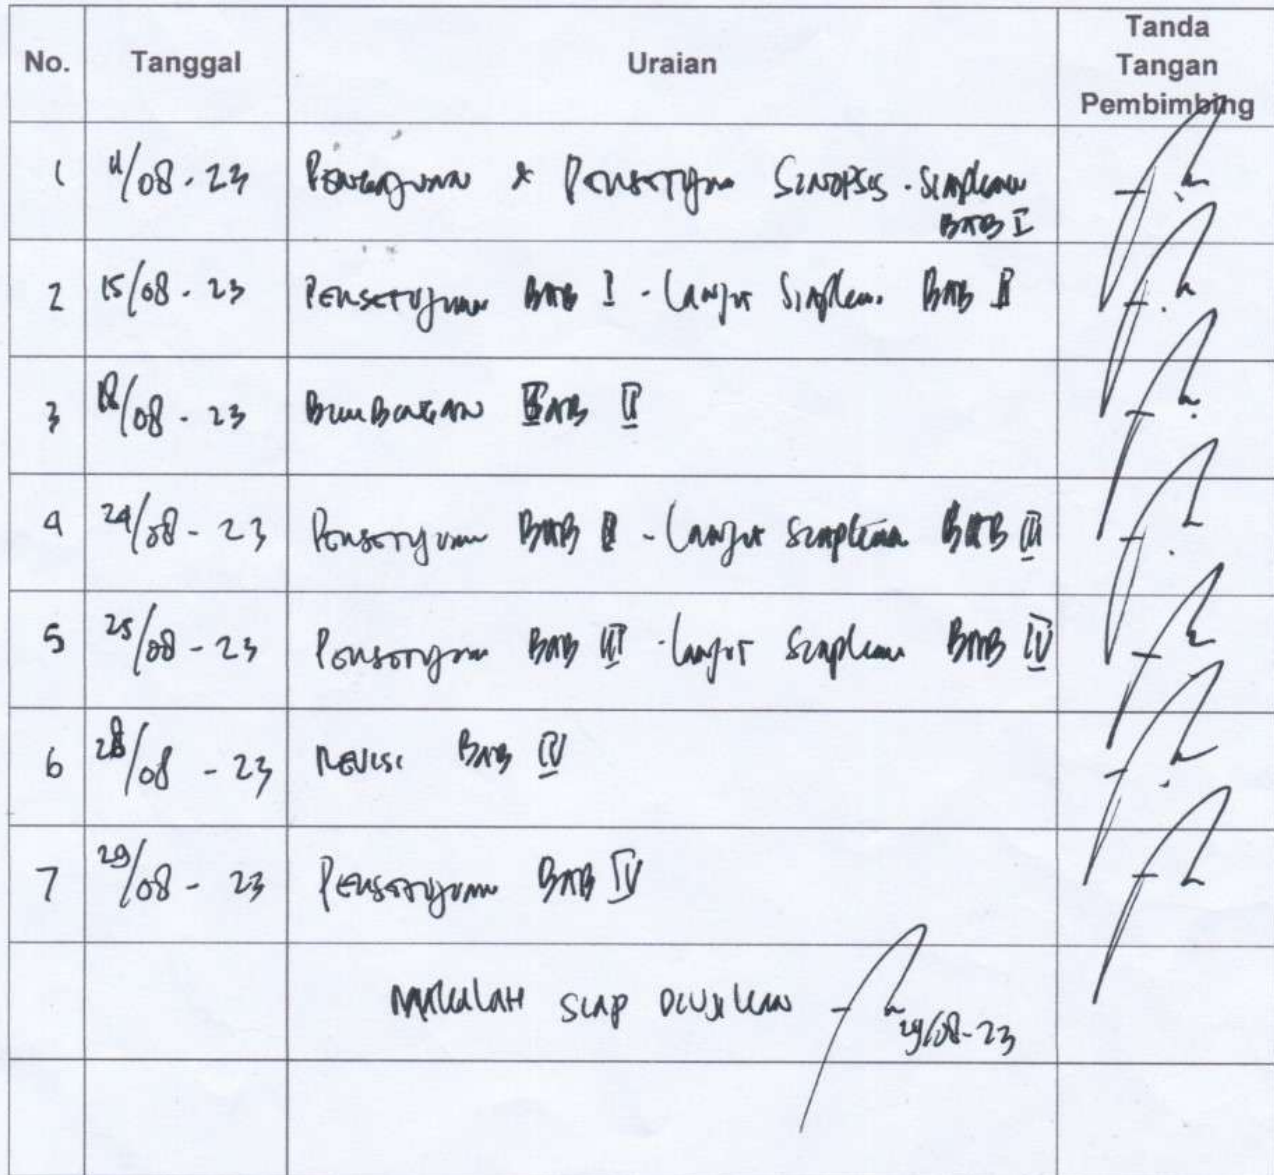 No. Tanggal Uraian Tanda Tangan Pembimbing
1 11/08-23 Pengajuan & Persetujuan Sinopsis - Siapkan
BAB I
2 15/08-23 Persetujuan BAB I - Lanjut Siapkan BAB II
3 18/08-23 Bimbingan BAB II
4 24/08-23 Persetujuan BAB II - Lanjut Siapkan BAB III
5 25/08-23 Persetujuan BAB III - Lanjut Siapkan BAB IV
6 28/08-23 Revisi BAB IV
7 29/08-23 Persetujuan BAB IV
Makalah siap diujikan
29/08-23